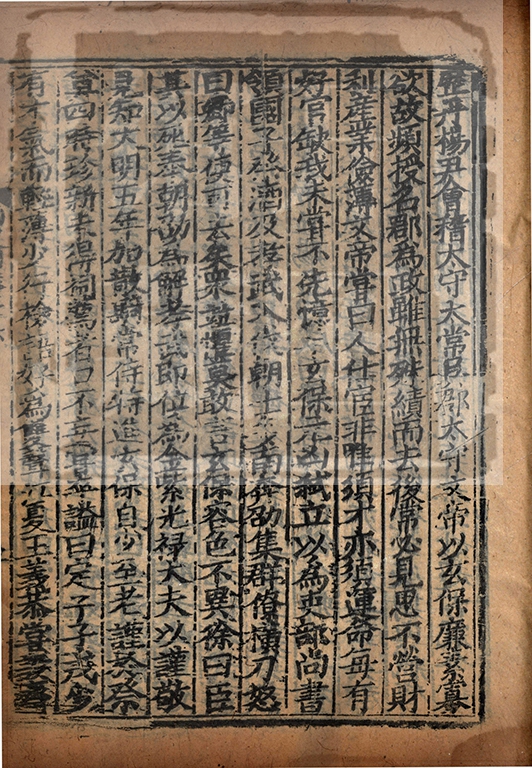 歷丹楊尹會稽太守太常吳郡太守文帝以玄保廉素寡
欲故頻授名郡為政雖無殊績而去後常必見思不營財
利產業儉薄文帝嘗曰人仕宦非唯須才亦須運命每有
好官缺我未嘗不先憶羊玄保元凶弒立以為吏部尚書
領國子祭酒及孝武入伐朝士多南奔劭集群僚橫刀怒
曰卿等便可去矣衆並懼莫敢言玄保容色不異徐曰臣
其以死奉朝劭為解孝武即位為金紫光祿大夫以謹敬
見知大明五年加散騎常侍特進玄保自少至老謹於祭
奠四時珍新未得祠薦者口不妄嘗卒謚曰定子子戎少
有才氣而輕薄少行檢語好為雙聲江夏王義恭嘗設齋